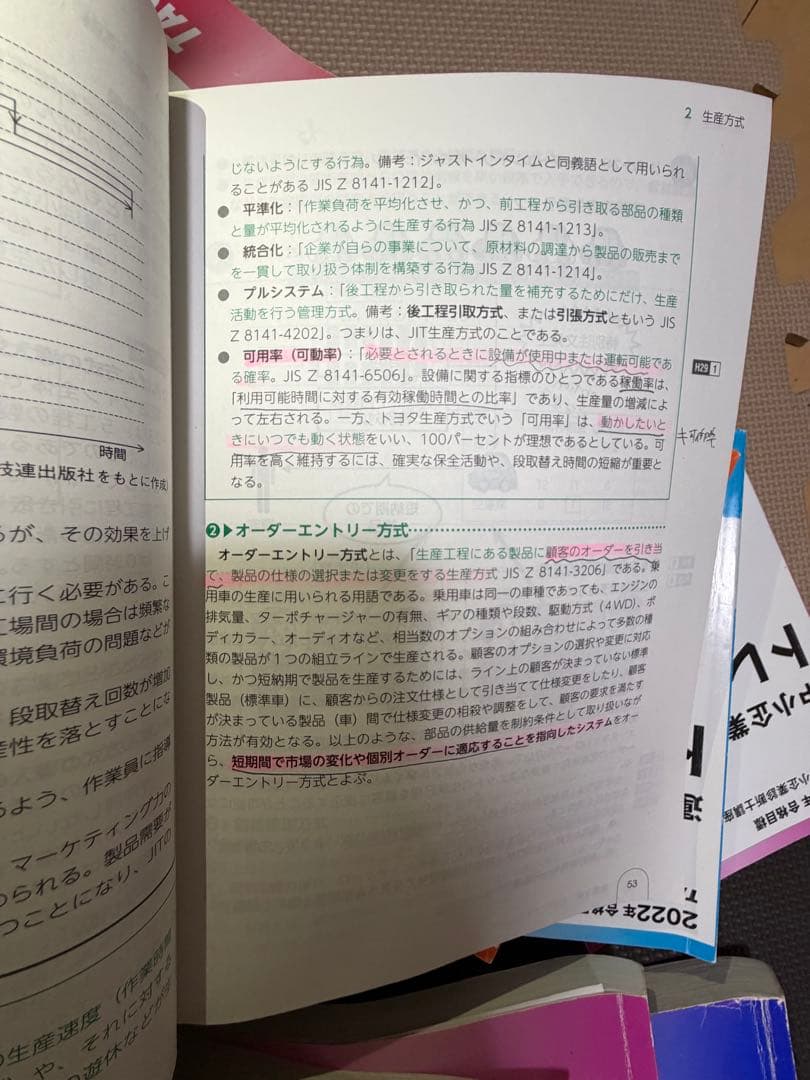 2 生産方式
じないようにする行為。備考：ジャストインタイムと同義語として用いられ
ることがある JIS Z 8141-1212」。
● 平準化：「作業負荷を平均化させ、かつ、前工程から引き取る部品の種類
と量が平均化されるように生産する行為 JIS Z 8141-1213」。
● 統合化：「企業が自らの事業について、原材料の調達から製品の販売まで
を一貫して取り扱う体制を構築する行為 JIS Z 8141-1214」。
● プルシステム：「後工程から引き取られた量を補充するためにだけ、生産
活動を行う管理方式。備考：後工程引取方式、または引張方式ともいう JIS
Z 8141-4202」。つまりは、JIT生産方式のことである。
● 可用率（可動率）：「必要とされるときに設備が使用中または運転可能であ
る確率。JIS Z 8141-6506」。設備に関する指標のひとつである稼働率は、
「利用可能時間に対する有効稼働時間との比率」であり、生産量の増減によ
って左右される。一方、トヨタ生産方式でいう「可用率」は、動かしたいと
きにいつでも動く状態をいい、100パーセントが理想であるとしている。可
用率を高く維持するには、確実な保全活動や、段取替え時間の短縮が重要と
なる。
H29 1
❷▶オーダーエントリー方式
オーダーエントリー方式とは、「生産工程にある製品に顧客のオーダーを引き当
て、製品の仕様の選択または変更をする生産方式 JIS Z 8141-3206」である。乗
用車の生産に用いられる用語である。乗用車は同一の車種であっても、エンジンの
排気量、ターボチャージャーの有無、ギアの種類や段数、駆動方式（4WD）、ボ
ディカラー、オーディオなど、相当数のオプションの組み合わせによって多数の種
類の製品が1つの組立ラインで生産される。顧客のオプションの選択や変更に対応
し、かつ短納期で製品を生産するためには、ライン上の顧客が決まっていない標準
製品（標準車）に、顧客からの注文仕様として引き当てて仕様変更をしたり、顧客
が決まっている製品（車）間で仕様変更の相殺や調整をして、顧客の要求を満たす
方法が有効となる。以上のような、部品の供給量を制約条件として取り扱いなが
ら、短期間で市場の変化や個別オーダーに適応することを指向したシステムをオー
ダーエントリー方式とよぶ。
53
時間
技連出版社をもとに作成)
るが、その効果を上げ
に行く必要がある。こ
工場間の場合は頻繁な
環境負荷の問題などが
段取替え回数が増加
産性を落とすことにな
るよう、作業員に指導
マーケティング力の
められる。製品需要が
つことになり、JITの
の生産速度（作業時間
や、それに対する
の遊休などが
中小企業
小企業診断士講座
年合格目標
2022年合格